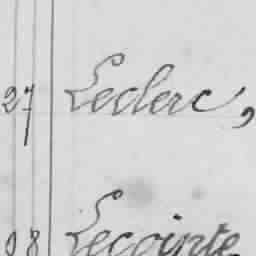 27 Leclerc,
98 Lecointe